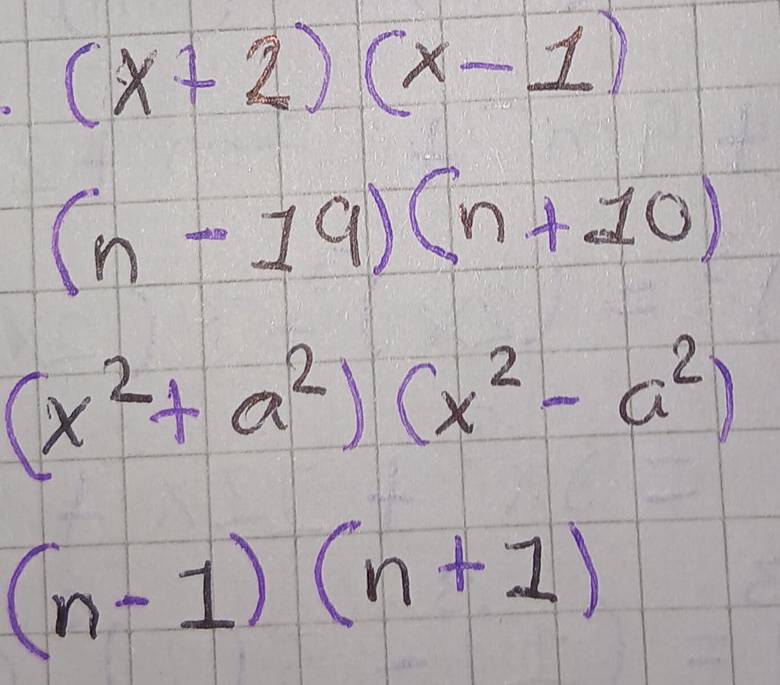 (x + 2) (x - 1)
(n - 19) (n + 10)
(x² + a²) (x² - a²)
(n - 1) (n + 1)